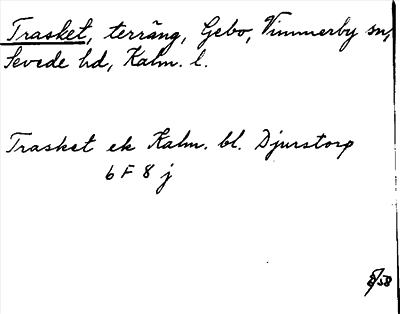 Trasket, terräng, Gebo, Vimmerby sn,
Sevede hd, Kalm. l.
Trasket ek Kalm. bl. Djurstorp
6 F 8 j